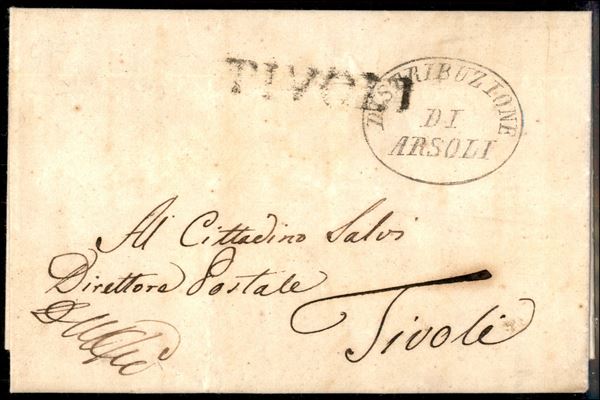 TIVOLI
DISTRIBUZIONE
DI
ARSOLI
Al Cittadino Salvi
Direttore Postale
Tivoli